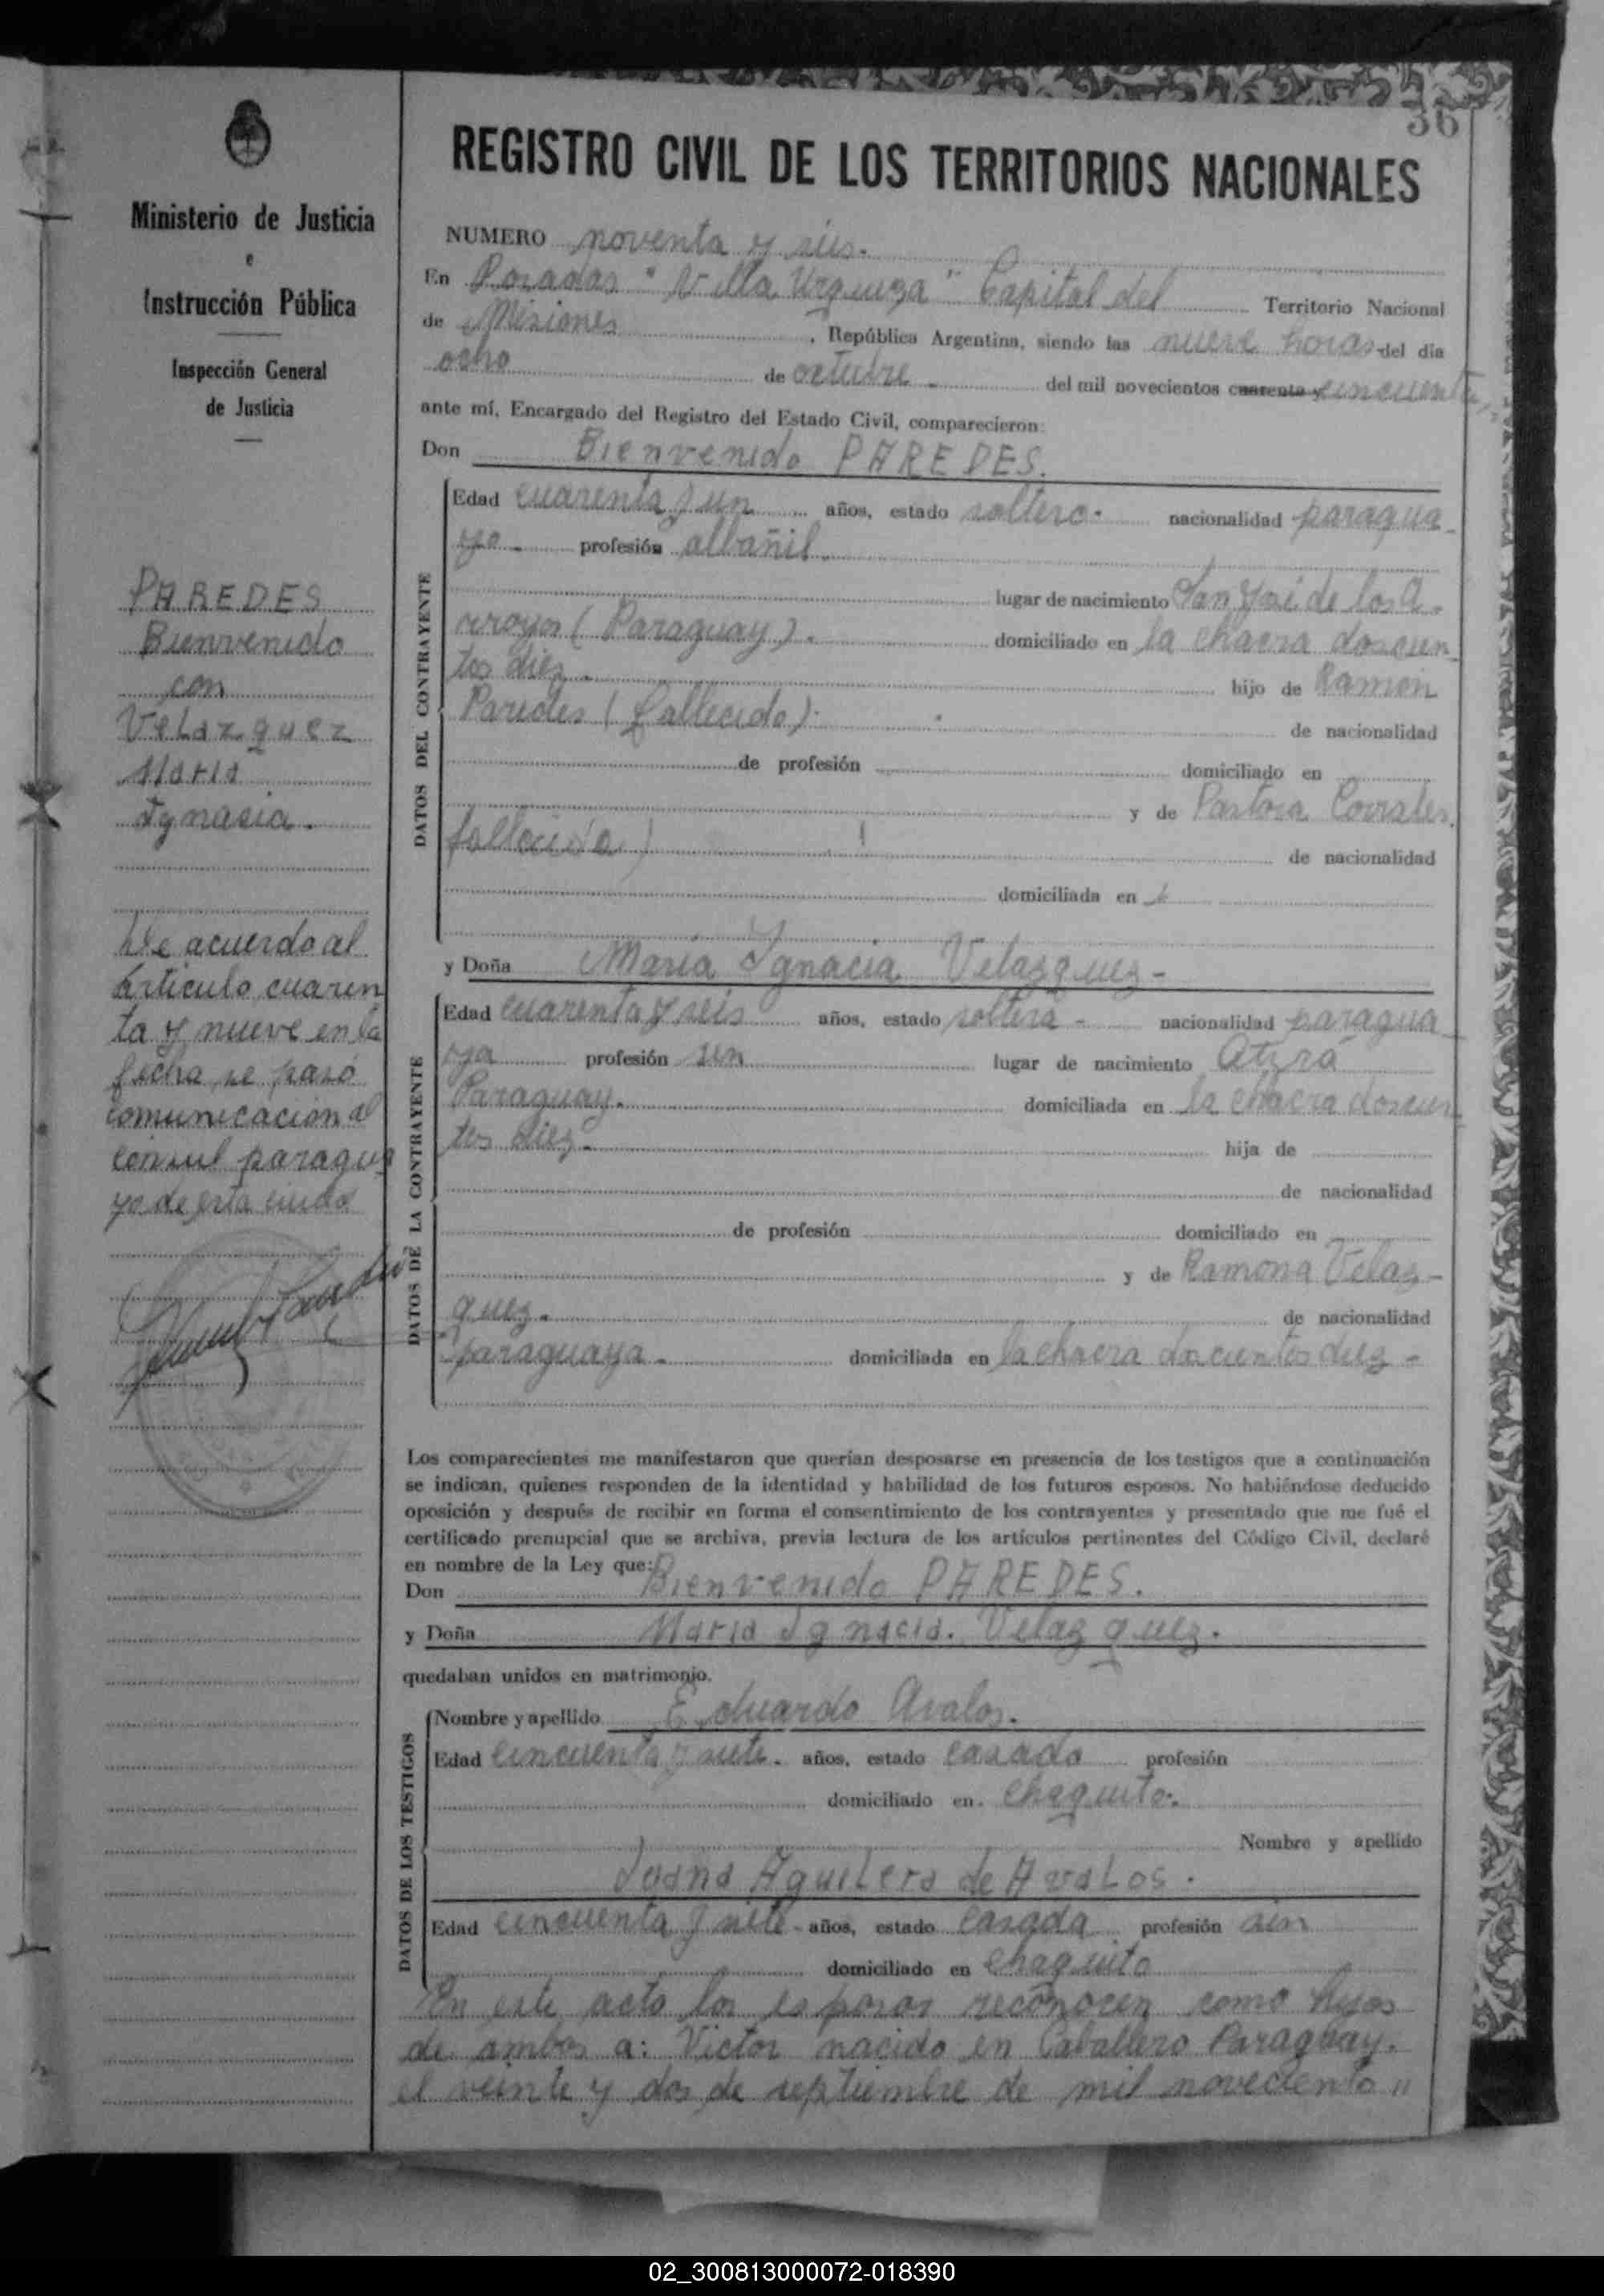 36
Ministerio de Justicia
e
Instrucción Pública
Inspección General
de Justicia
PAREDES
Bienvenido
con
VeLazquez
Maria
Ignacia.
De acuerdo al
Articulo cuaren
ta y nueve en la
fecha se pasó
comunicacion al
consul paragua
yo de esta ciuda
REGISTRO CIVIL DE LOS TERRITORIOS NACIONALES
NUMERO noventa y seis.
En Posadas "Villa Urquiza" Capital del Territorio Nacional
de Misiones, República Argentina, siendo las nueve horas del día
ocho de octubre. del mil novecientos cuarenta y cincuenta,
ante mí, Encargado del Registro del Estado Civil, comparecieron:
Don Bienvenido PAREDES.
DATOS DEL CONTRAYENTE
Edad cuarenta y un años, estado soltero. nacionalidad paragua-
yo. profesión albañil.
lugar de nacimiento San José de los A.
rroyos (Paraguay). domiciliado en la chacra doscien
tos diez. hijo de Ramón
Paredes (fallecido). de nacionalidad
de profesión domiciliado en
y de Pastora Corrales,
fallecida) de nacionalidad
domiciliada en
y Doña Maria Ignacia Velazquez-
DATOS DE LA CONTRAYENTE
Edad cuarenta y seis años, estado soltera - nacionalidad paragua
ya profesión sin lugar de nacimiento Atirá
Paraguay. domiciliada en la chacra doscien
tos diez. hija de
de nacionalidad
de profesión domiciliado en
y de Ramona Velaz-
quez. de nacionalidad
paraguaya. domiciliada en la chacra doscientos diez -
Los comparecientes me manifestaron que querían desposarse en presencia de los testigos que a continuación
se indican, quienes responden de la identidad y habilidad de los futuros esposos. No habiéndose deducido
oposición y después de recibir en forma el consentimiento de los contrayentes y presentado que me fué el
certificado prenupcial que se archiva, previa lectura de los artículos pertinentes del Código Civil, declaré
en nombre de la Ley que:
Don Bienvenido PAREDES.
y Doña Maria Ignacia. Velazquez.
quedaban unidos en matrimonio.
DATOS DE LOS TESTIGOS
Nombre y apellido Eduardo Avalos.
Edad cincuenta y siete. años, estado casado profesión
domiciliado en. Chaquito.
Nombre y apellido
Juana Aguilera de AvaLos.
Edad cincuenta y siete - años, estado casada profesión sin
domiciliado en chaquito
En este acto los esposos reconocen como hijos
de ambos a: Victor nacido en Caballero Paraguay.
el veinte y dos de septiembre de mil noveciento"
02_300813000072-018390